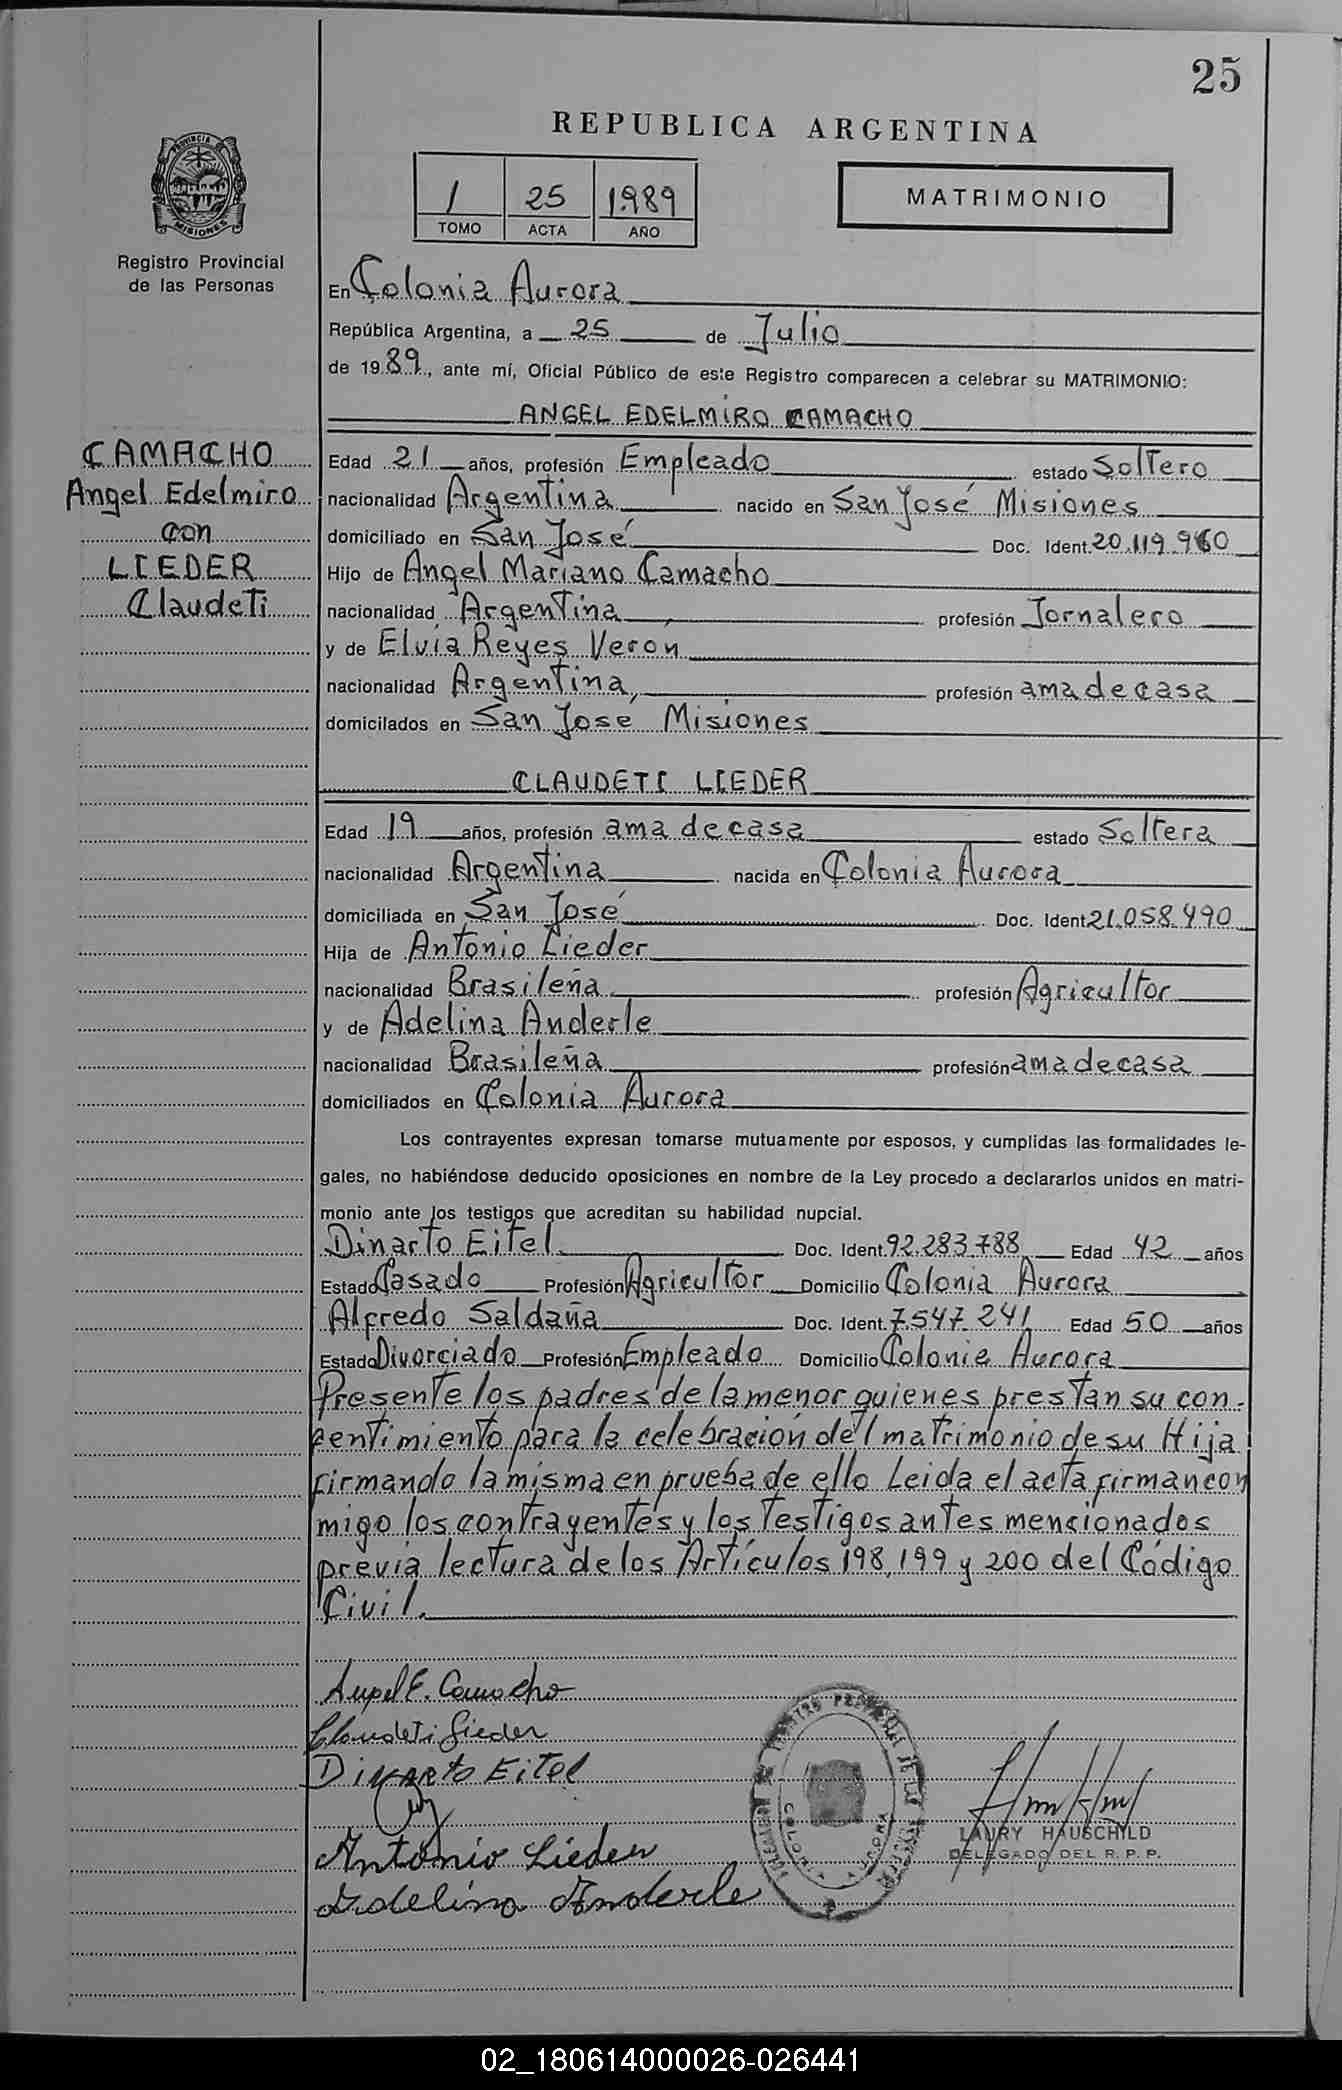 25
REPUBLICA ARGENTINA
PROVINCIA DE
MISIONES
Registro Provincial
de las Personas
1 25 1.989
TOMO ACTA AÑO
MATRIMONIO
En Colonia Aurora
República Argentina, a 25 de Julio
de 1989, ante mí, Oficial Público de este Registro comparecen a celebrar su MATRIMONIO:
ANGEL EDELMIRO CAMACHO
CAMACHO
Angel Edelmiro
con
LIEDER
Claudeti
Edad 21 años, profesión Empleado estado Soltero
nacionalidad Argentina nacido en San José Misiones
domiciliado en San José Doc. Ident. 20.119.960
Hijo de Angel Mariano Camacho
nacionalidad Argentina, profesión Jornalero
y de Elvia Reyes Verón
nacionalidad Argentina, profesión ama de casa
domicilados en San José Misiones
CLAUDETI LIEDER
Edad 19 años, profesión ama de casa estado Soltera
nacionalidad Argentina nacida en Colonia Aurora
domiciliada en San José Doc. Ident 21.058.490
Hija de Antonio Lieder
nacionalidad Brasileña profesión Agricultor
y de Adelina Anderle
nacionalidad Brasileña profesión ama de casa
domiciliados en Colonia Aurora
Los contrayentes expresan tomarse mutuamente por esposos, y cumplidas las formalidades le-
gales, no habiéndose deducido oposiciones en nombre de la Ley procedo a declararlos unidos en matri-
monio ante los testigos que acreditan su habilidad nupcial.
Dinarto Eitel Doc. Ident. 92.283.788 Edad 42 años
Estado Casado Profesión Agricultor Domicilio Colonia Aurora
Alfredo Saldaña Doc. Ident. 7.547.241 Edad 50 años
Estado Divorciado Profesión Empleado Domicilio Colonia Aurora
Presente los padres de la menor quienes prestan su con-
sentimiento para la celebración del matrimonio de su Hija
firmando la misma en prueba de ello Leida el acta firman con
migo los contrayentes y los Testigos antes mencionados
previa lectura de los Artículos 198, 199 y 200 del Código
Civil.
Angel E. Camacho
Claudeti Lieder
DINARTO EITEL
Antonio Lieder
Adelina Anderle
LAURY HAUSCHILD
DELEGADO DEL R. P. P.
02_180614000026-026441